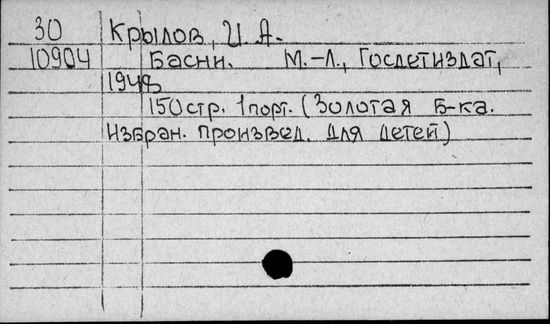 30 Крылов, И. А.
10904 Басни. М.-Л., Госдетиздат,
1948
150стр. 1порт. (Золотая Б-ка.
Избран. произвед. для детей)